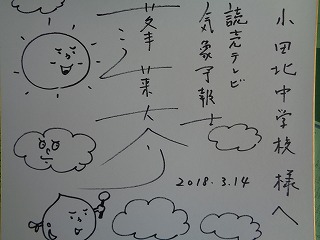 小田北中学校様へ
読売テレビ
気象予報士
蓬莱大介
2018.3.14